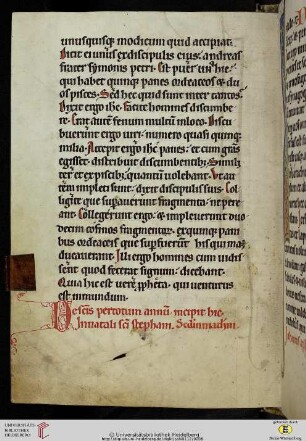 unusquisq; modicum quid accipiat.
Dicit ei unus ex discipulis eius, andreas
frater symonis petri. Est puer unus hic.
qui habet quinq; panes ordeaceos & du
os pisces. Sed hec quid sunt inter tantos.
Dixit ergo ihc. Facite homines discumbe
re. Erat autem fenum multum in loco. Discu
buerunt ergo uiri. numero quasi quinq;
milia. Accepit ergo ihc panes. et cum gratias
egisset. distribuit discumbentibus. Simili
ter et ex piscibus quantum uolebant. Ut au
tem impleti sunt. dixit discipulis suis. Col
ligite que supauerunt fragmenta. ne pere
ant. Collegerunt ergo. & impleuerunt duo
decim cofinos fragmentorum. ex quinq; pani
bus ordeaceis que supfuerunt his qui man
ducauerant. Illi ergo homines cum uidis
sent quod fecerat signum. dicebant.
Quia hic est uere ppheta. qui uenturus
est in mundum.
per totum annum. incipit hic
In natali sci stephani.
UNIVERSITÄTS-
BIBLIOTHEK
HEIDELBERG
© Universitätsbibliothek Heidelberg